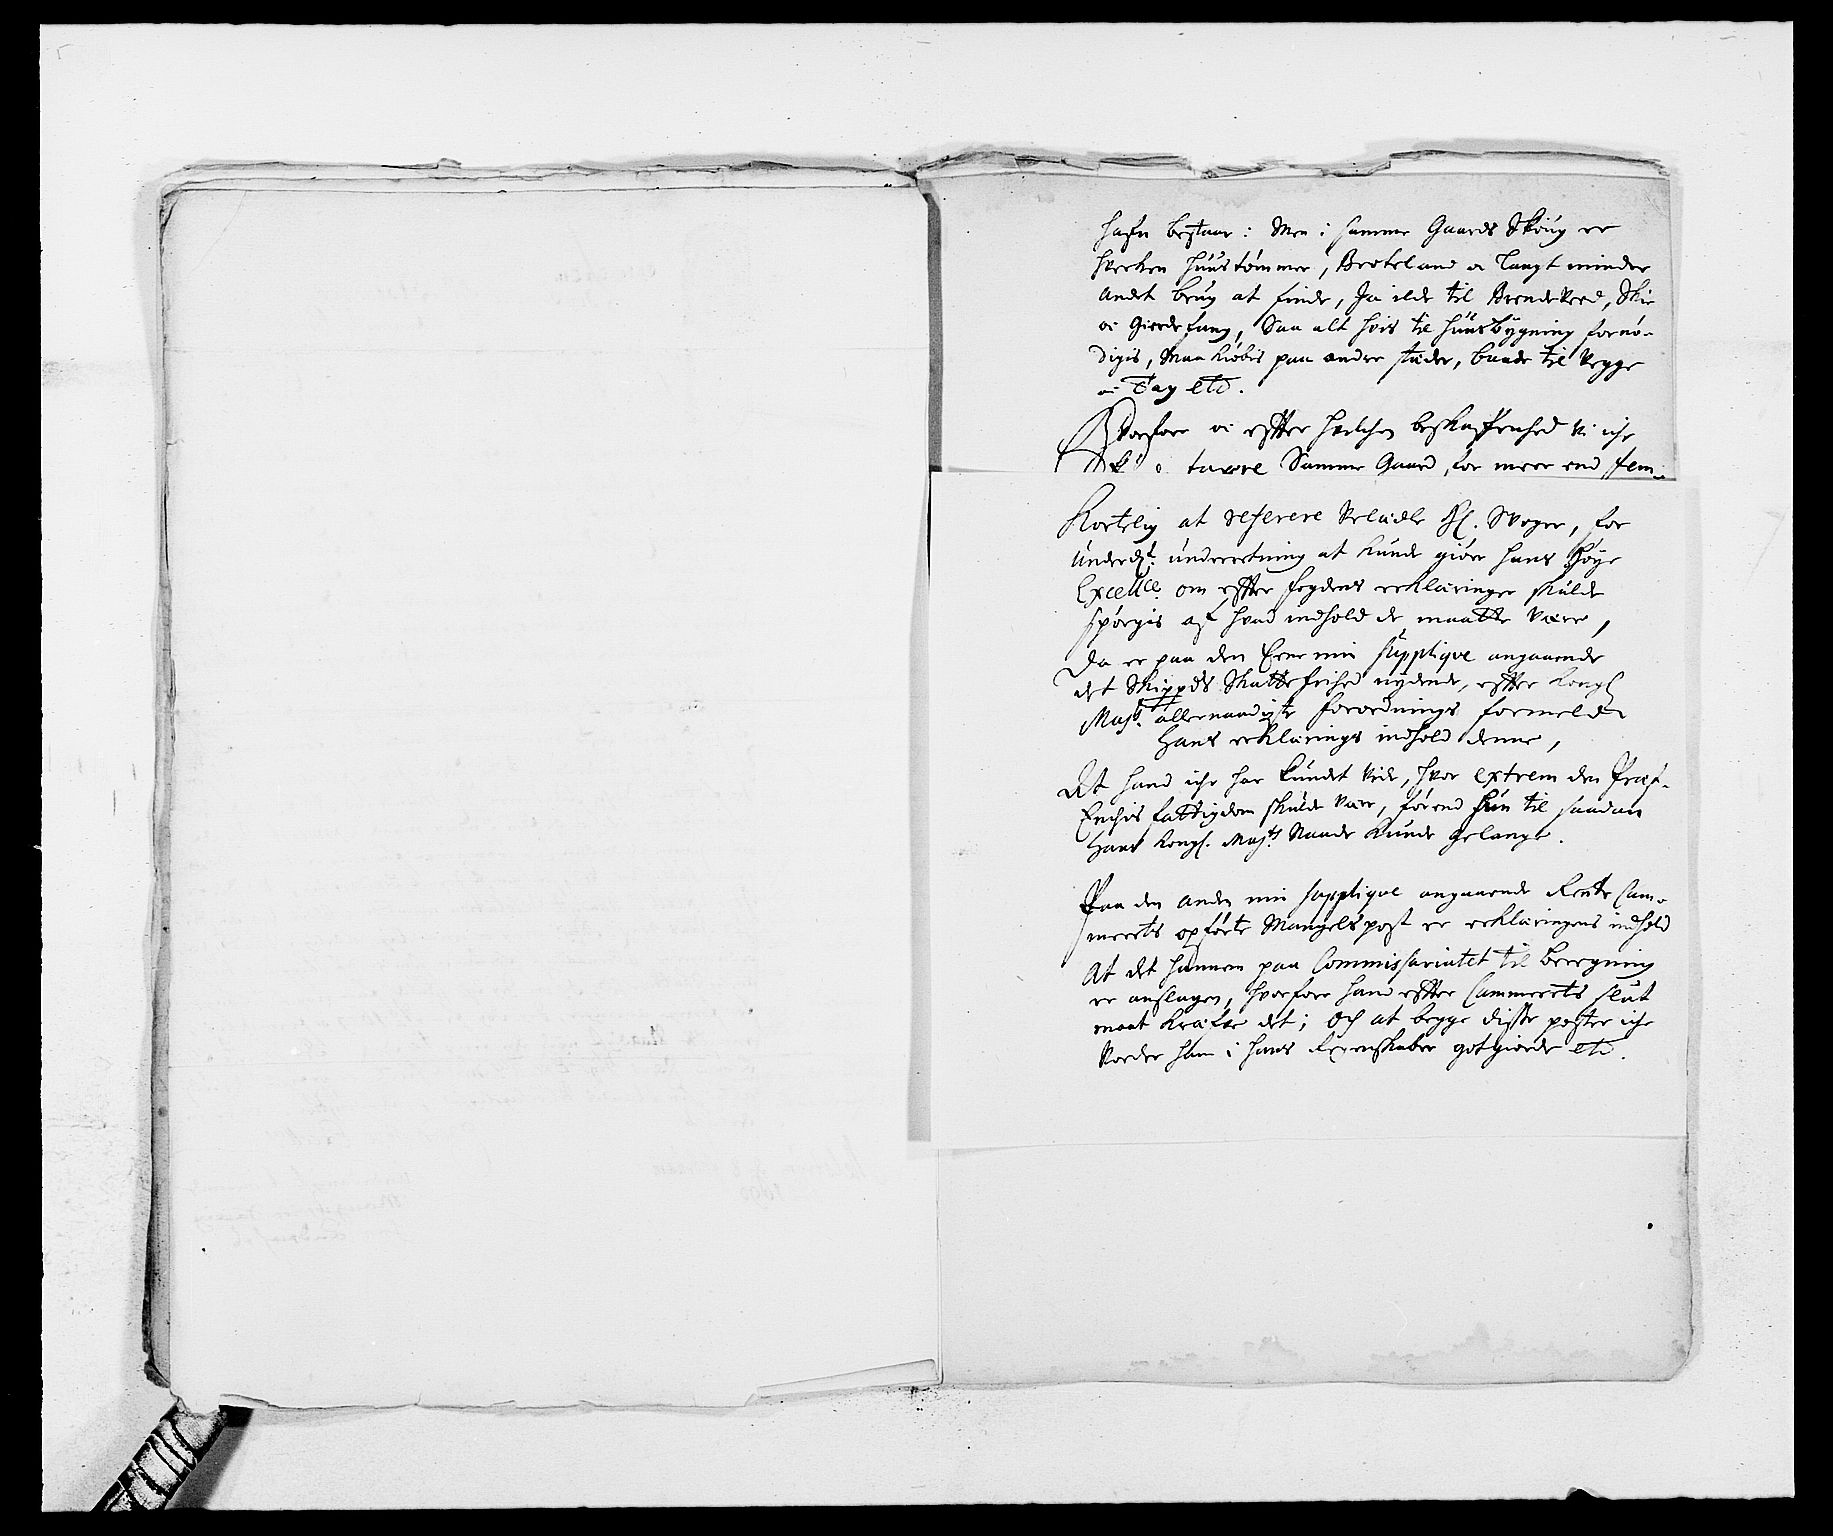 hafn bestaar: Men i samme Gaards Skoug er
hverken huustømmer, Breteland oc langt minder
andet brug at finde, Ja ilde til Brendeved, Skie
oc Gierdefang, Saa alt hvis til huusbygning fornø-
digis, Maa kiøbis paa andre stæder, baade til vegge
oc Tag etc.
Hvorfore oc effter hvilchen beskaffenhed vi iche
taxere Samme Gaard, for meer end fem
Kortelig at referere Velædle Hr. Svoger, for
underd: underretning at kunde giøre hans Høye
Excellce. om effter fogdens erklæringer skulde
spørgis af hvad indhold de maatte være,
Da er paa den Eene min supplique angaaende
det Skippds Skatte frihed nydende, effter Kongl
Mayts. allernaadigste forordnings formeld
Hans erklærings indhold denne,
At hand iche har kundet vide, hvor extrem den Præste
Enchis fattigdom skulde være, førend hun til saadan
Hans Kongl. Mayts Naade kunde gelange.
Paa den anden min supplique angaaende Rente Cam-
merets opførte Mangelspost er erklæringens indhold
At det hannem paa Commissariatet til beregning
er anslagen, hvorfore hand effter Cammerets slut
maat kræfve det; Och at begge disse poster iche
vorder ham i hans Regenskaber gotgiorde etc.